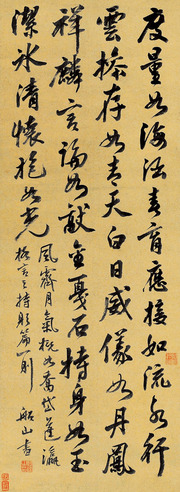 度量如海涵春育應接如流水行
雲操存如青天白日威儀如丹鳳
祥麟言論如敲金戛石持身如玉
潔冰清懷抱如光
風霽月氣概如喬岱蓬瀛
格言之持躬篇一則 船山書